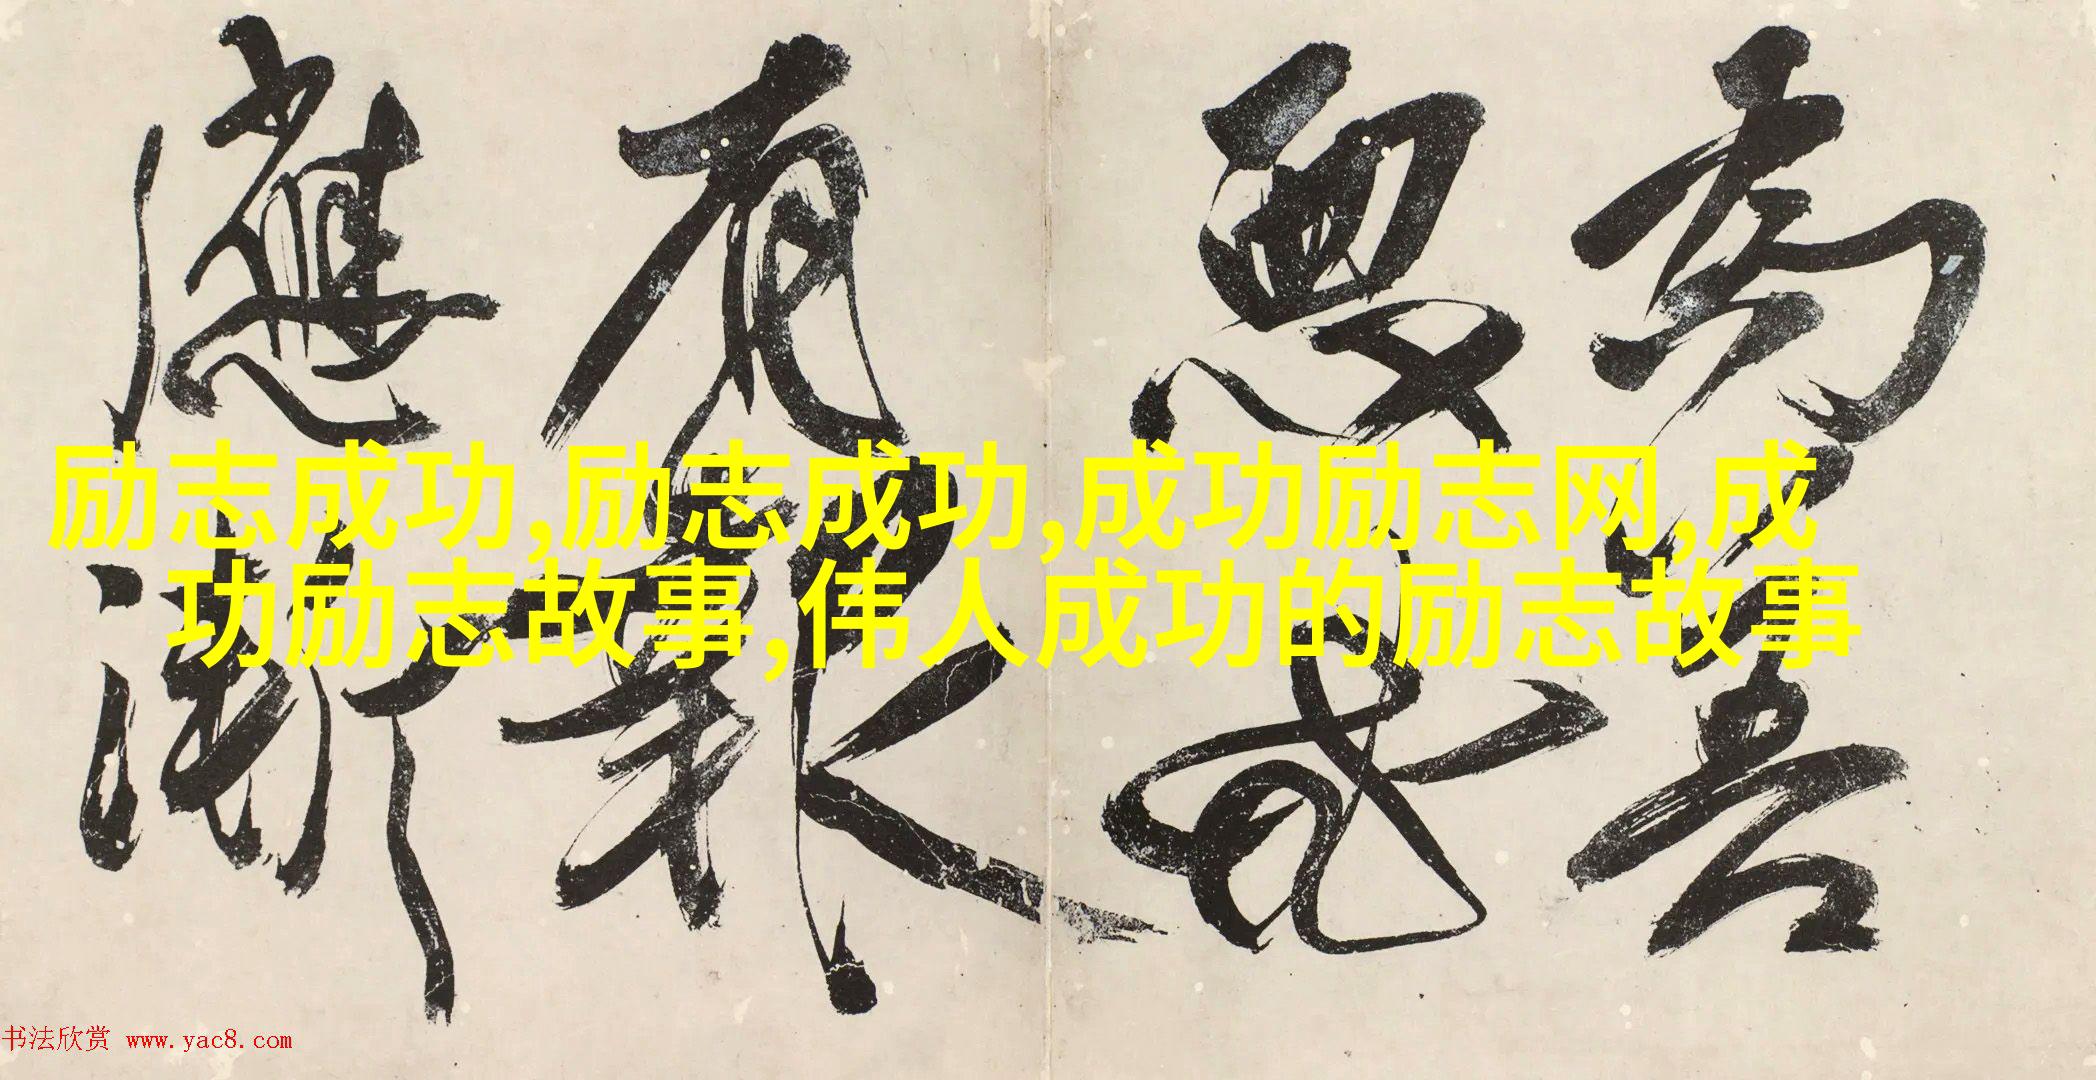 励志成功,励志成功,成功励志网,成
功励志故事,伟人成功的励志故事
為善
惡
有報
應漸
书法欣赏 www.yac8.com